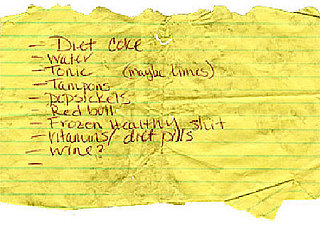 - Diet coke
- water
- Tonic (maybe limes)
- Tampons
- popsickels
- Red bull
- Frozen Healthy shit
- vitamins/ diet pills
- wine?
-